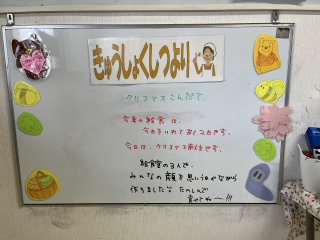 きゅうしょくしつより
クリスマスこんだて
今年の給食は、
今日をいれてあと2日です。
今日は、クリスマス献立です。
給食室の3人で、
みんなの顔を思いうかべながら
作りましたな たのしんで
食べてね〜!!!